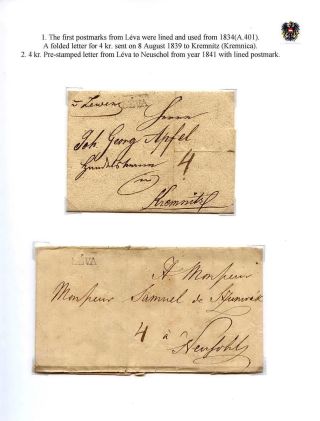 1. The first postmarks from Léva were lined and used from 1834(A.401).
A folded letter for 4 kr. sent on 8 August 1839 to Kremnitz (Kremnica).
2. 4 kr. Pre-stamped letter from Léva to Neuschol from year 1841 with lined postmark.
LÉVA
Herrn
Joh Georg Apfel
4
Kremnitz
LÉVA
A Monsieur
Monsieur Samuel de
4 à
Neusohl